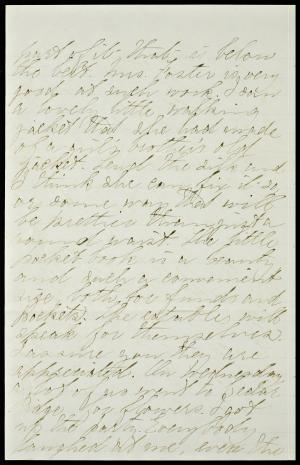 part of it that is below
the belt. Mrs. Foster is very
good at such work. I saw
a lovely little walking
jacket that she had made
of a only brothers old
jacket. Send the silk and
I think she can fix it so
or some way that will
be prettier than just a
round waist. The little
pocket book is a beauty
and such a convenient
size, both for funds and
pockets. The eatables will
speak for themselves.
I assure you they are
appreciated. On Wednesday
a lot of us went to Cedar
Ridge for flowers. I got
up the party. Everybody
laughed at me, even the